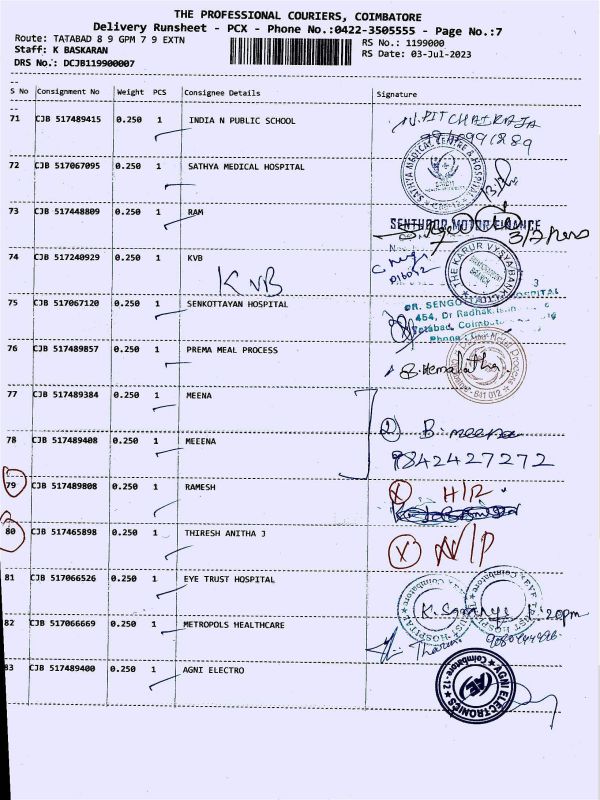 THE PROFESSIONAL COURIERS, COIMBATORE
Delivery Runsheet - PCX - Phone No.:0422-3505555 - Page No.:7
Route: TATABAD 8 9 GPM 7 9 EXTN RS No.: 1199000
Staff: K BASKARAN RS Date: 03-Jul-2023
DRS No.: DCJB119900007
S No Consignment No Weight PCS Consignee Details Signature
71 CJB 517489415 0.250 1 INDIA N PUBLIC SCHOOL N.PITCHAIRAJA
72 CJB 517067095 0.250 1 SATHYA MEDICAL HOSPITAL SATHYA MEDICAL CENTRE & HOSPITAL
73 CJB 517448809 0.250 1 RAM SENTHOOR MOTOR FINANCE
74 CJB 517240929 0.250 1 KVB THE KARUR VYSYA BANK
KVB
75 CJB 517067120 0.250 1 SENKOTTAYAN HOSPITAL
DR. SENGO HOSPITAL
454, Dr Radhak
Tatabad, Coimbat
Phone
76 CJB 517489857 0.250 1 PREMA MEAL PROCESS B.Hemalatha
641 012
77 CJB 517489384 0.250 1 MEENA
2 B. meena
78 CJB 517489408 0.250 1 MEEENA 9842427272
79 CJB 517489808 0.250 1 RAMESH X H/R
80 CJB 517465898 0.250 1 THIRESH ANITHA J X N/P
81 CJB 517066526 0.250 1 EYE TRUST HOSPITAL
82 CJB 517066669 0.250 1 METROPOLS HEALTHCARE
83 CJB 517489400 0.250 1 AGNI ELECTRO AGNI ELECTRONICS Coimbatore-12